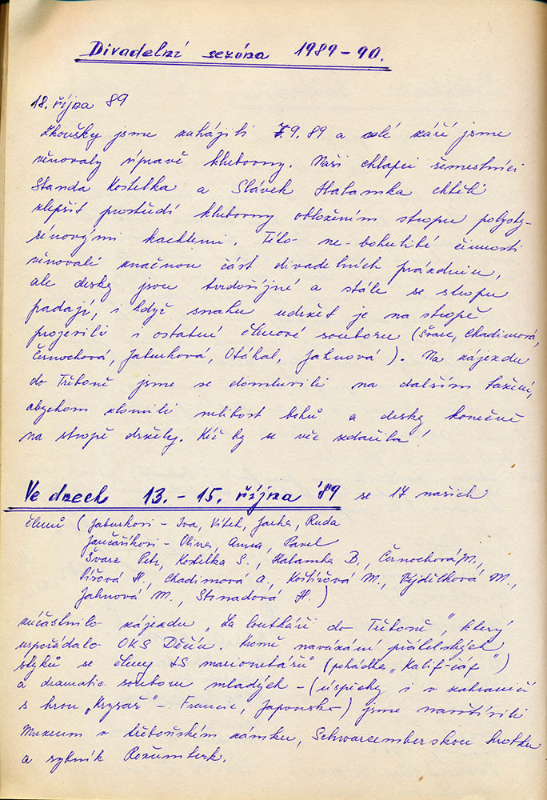 Divadelní sezóna 1989-90.
18. října 89
Zkoušky jsme zahájili 7.9.89 a celé září jsme
věnovaly úpravě klubovny. Naši chlapci řemeslníci
Standa Kostelka a Slávek Halamka chtěli
zlepšit prostředí klubovny obložením stropu polysty-
rénovými kachlemi. Této ne-bohulibé činnosti
věnovali značnou část divadelních prázdnin,
ale desky jsou tvrdošíjné a stále se stropu
padají, i když snahu udržet je na stropě
projevili i ostatní členové souboru (Švarc, Chadimová,
Černochová, Jaburková, Otáhal, Jahnová). Na zájezdu
do Třeboně jsme se domluvili na dalším tažení,
abychom zlomili milost bohů a desky konečně
na stropě držely. Kéž by se věc zdařila!
Ve dnech 13. - 15. října '89 se 17 našich
členů (Jaburkovi - Iva, Vítek, Jarka, Ruda
Jančaříkovi - Olina, Anna, Pavel
Švarc Petr, Kostelka S., Halamka B., Černochová M.,
Píšová H., Chadimová A., Koštířová M., Vojdilková M.,
Jahnová M., Strnadová H.)
zúčastnilo zájezdu "Za loutkáři do Třeboně", který
uspořádalo OKS Děčín. Kromě navázání přátelských
styků se členy LS marionetářů (pohádka "Kalif-čáp")
a dramatic souboru mladých - (úspěchy i v zahraničí
s hrou "Krysař" - Francie, Japonsko) jsme navštívili
Muzeum v třeboňském zámku, Schwarcemberskou hrobku
a rybník Rožumberk.